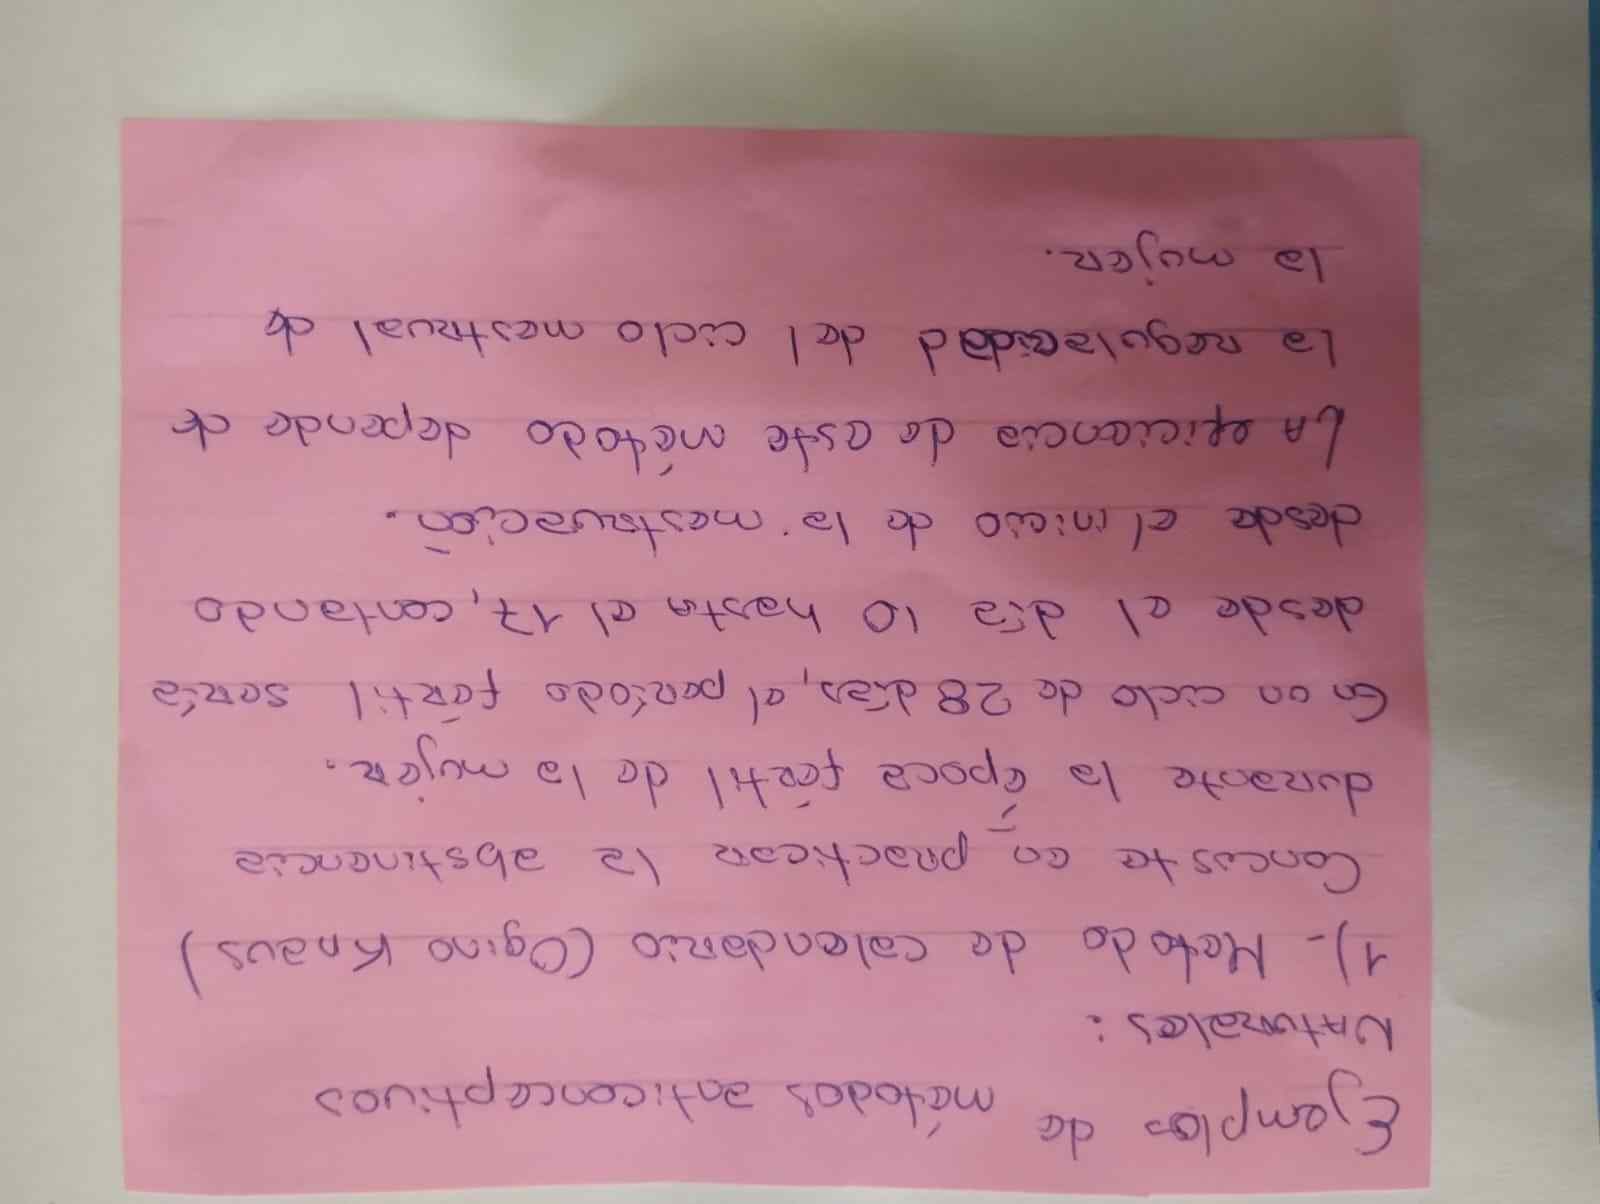 Ejemplos de métodos anticonceptivos
Naturales:
1)- Metodo de calendario (Ogino Knaus)
Consiste en practicar la abstinencia
durante la época fértil de la mujer.
En un ciclo de 28 días, el período fértil sería
desde el día 10 hasta el 17, contando
desde el inicio de la mestruación.
La eficiencia de este método depende de
la regularidad del ciclo mestrual de
la mujer.